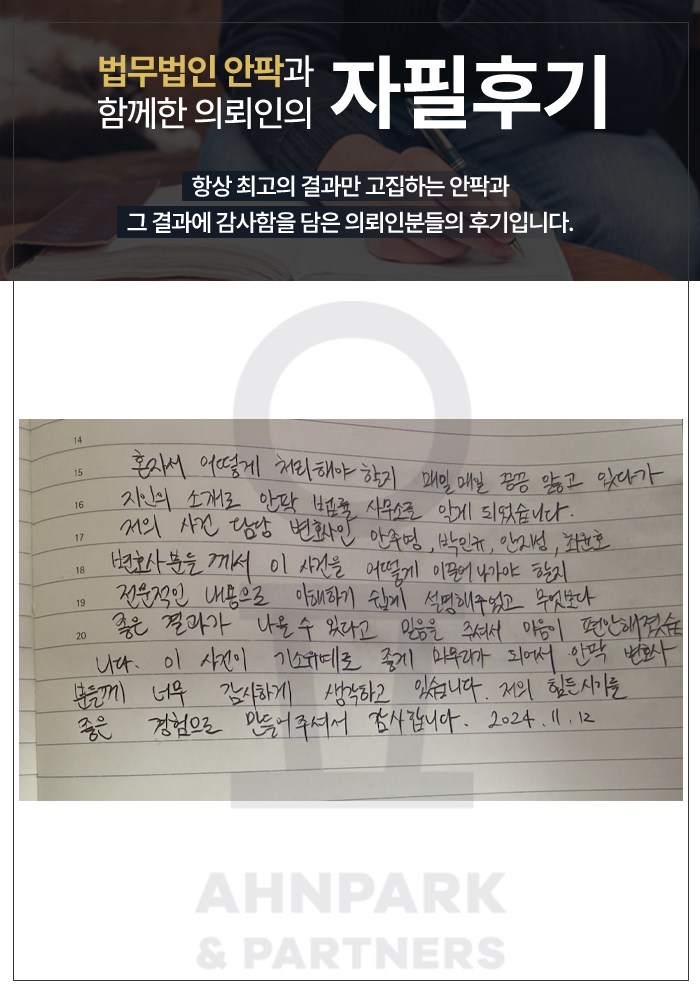 법무법인 안팍과
함께한 의뢰인의
자필후기
항상 최고의 결과만 고집하는 안팍과
그 결과에 감사함을 담은 의뢰인분들의 후기입니다.
14
15 혼자서 어떻게 처리해야 할지 매일매일 끙끙 앓고 있다가
16 지인의 소개로 안팍 법률 사무소로 알게 되었습니다.
17 저의 사건 담당 변호사인 안주영, 박민규, 안지성, 최윤호
18 변호사분들께서 이 사건을 어떻게 이끌어나가야 할지
19 전문적인 내용으로 이해하기 쉽게 설명해주었고 무엇보다
20 좋은 결과가 나올 수 있다고 믿음을 주셔서 마음이 편안해졌습
니다. 이 사건이 기소유예로 좋게 마무리가 되어서 안팍 변호사
분들께 너무 감사하게 생각하고 있습니다. 저의 힘든시기를
좋은 경험으로 만들어주셔서 감사합니다. 2024.11.12
AHNPARK
& PARTNERS